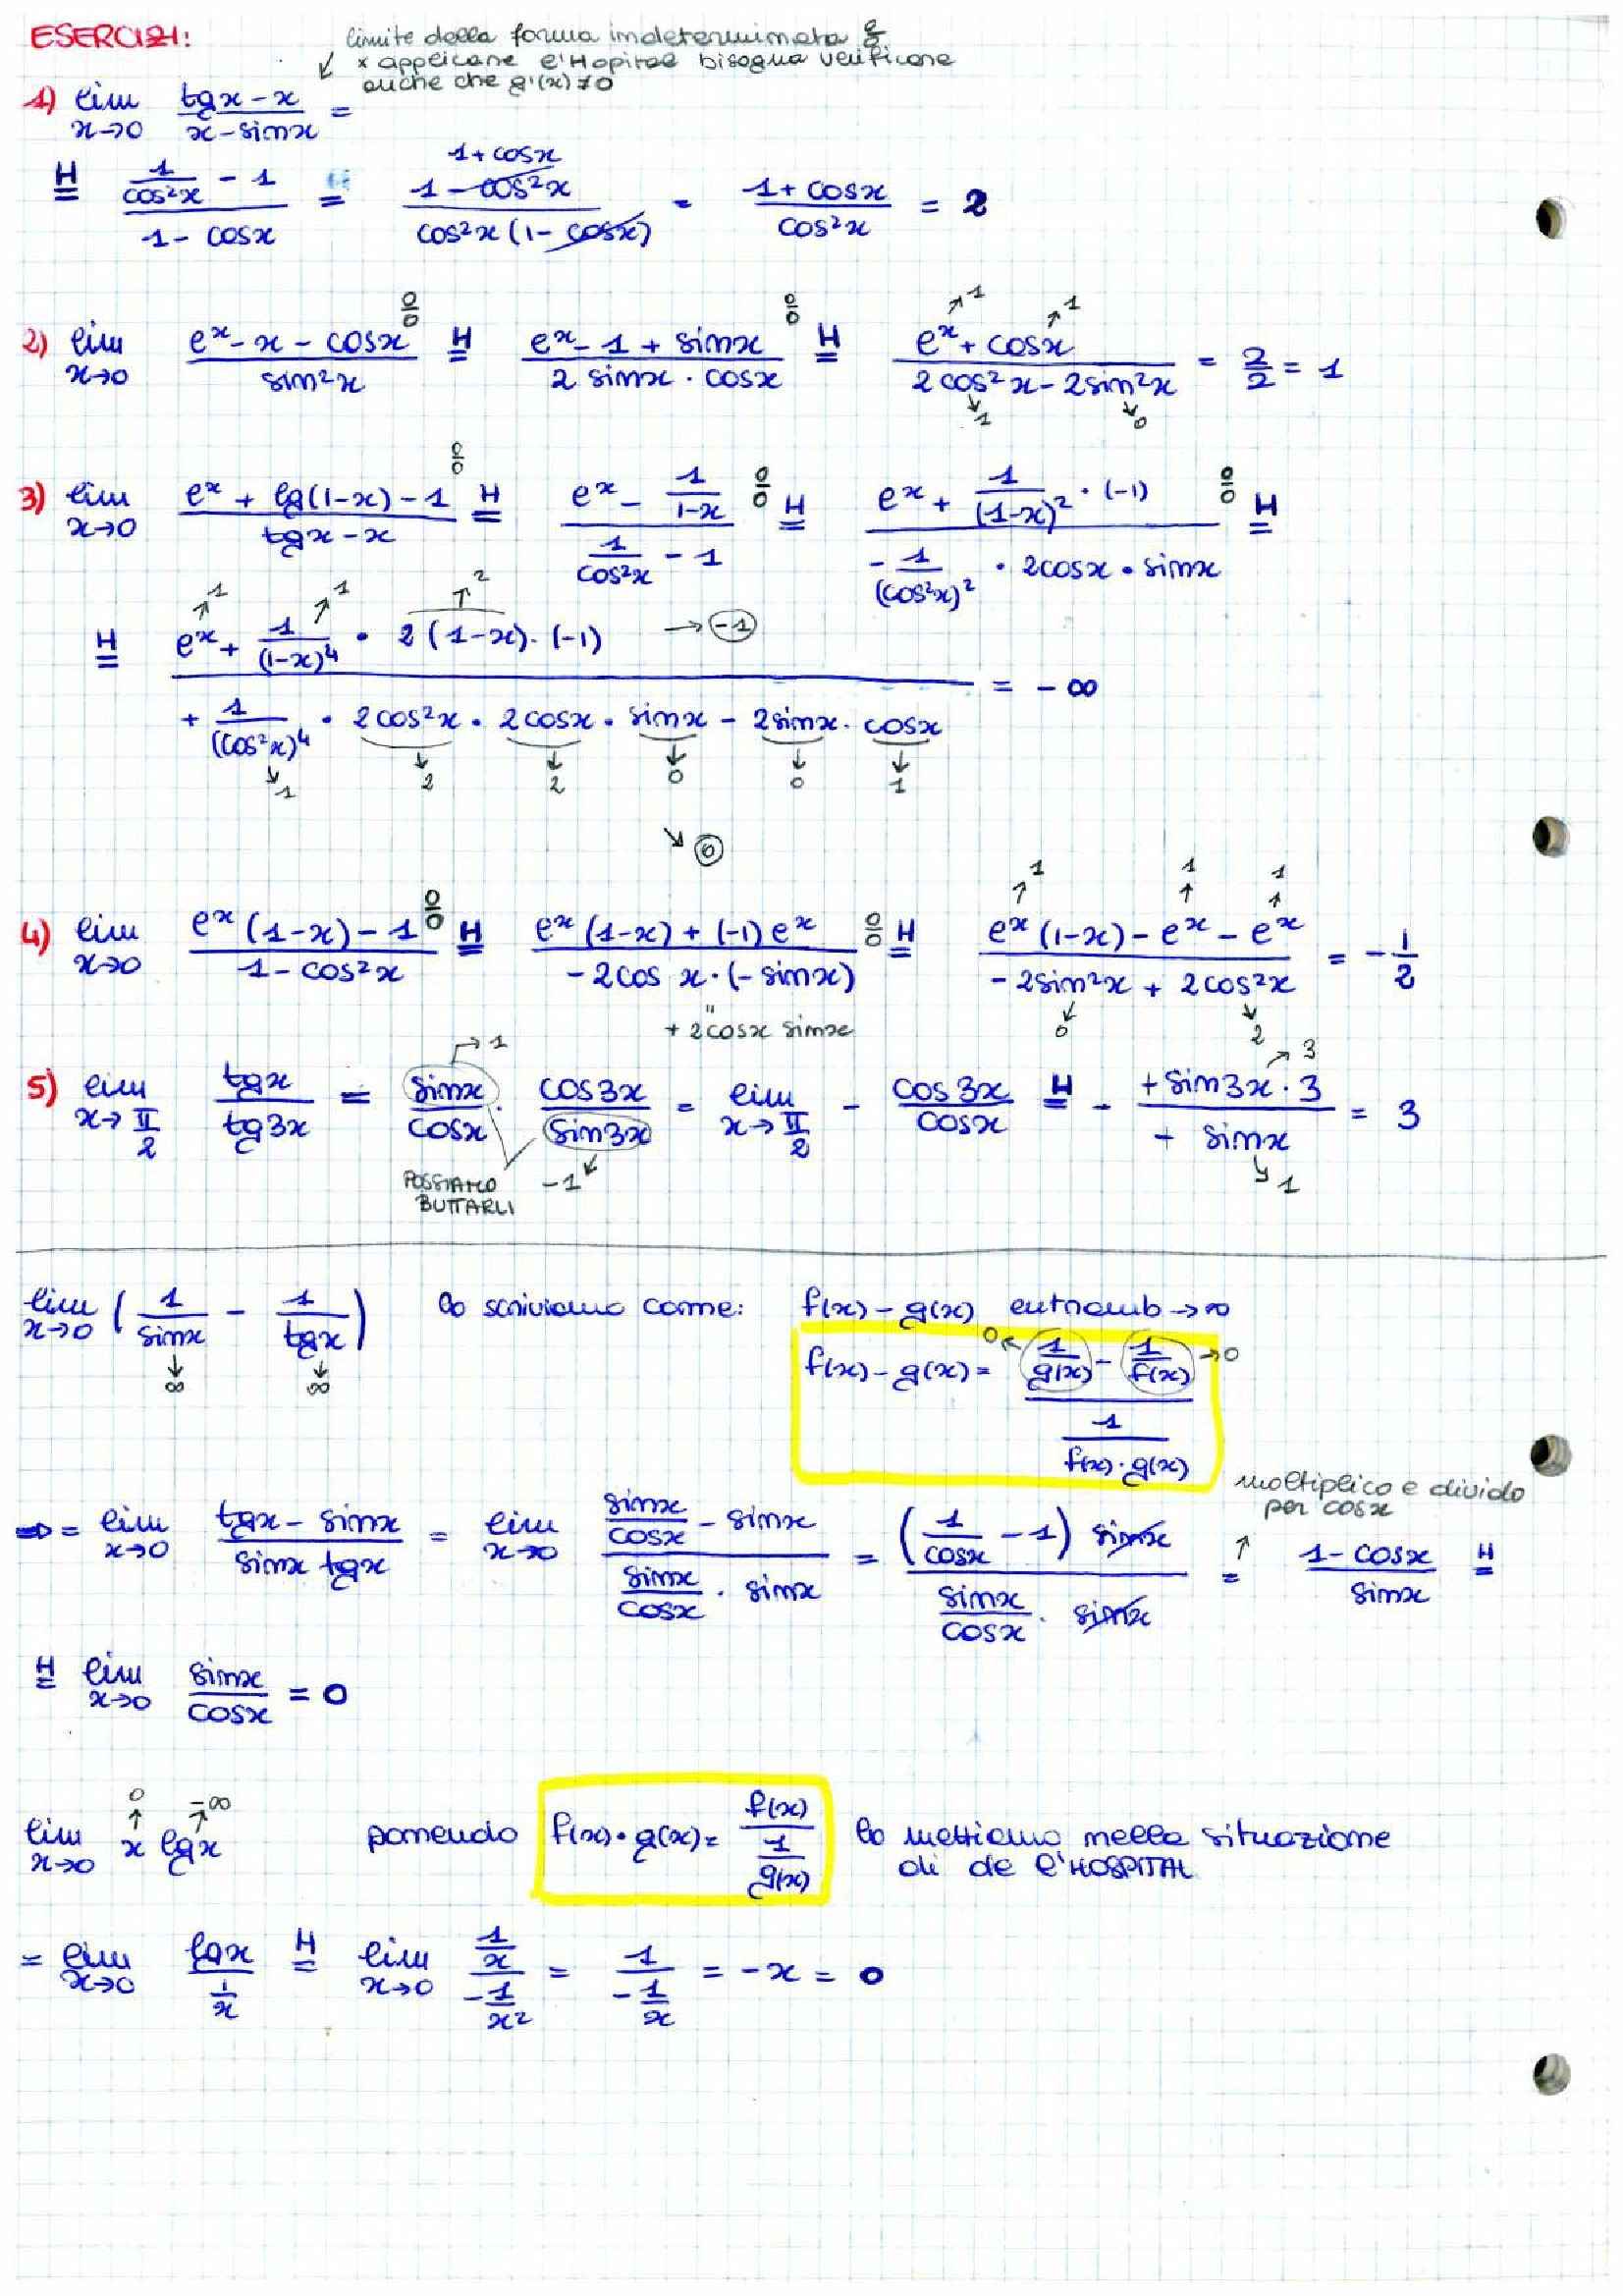 ESERCIZI:
limite della forma indeterminata 0/0
x applicare l'Hopital bisogna verificare
anche che g'(x)≠0
1) lim x→0 (tgx - x)/(x - sinx) =
H= (1/cos²x - 1)/(1 - cosx) = (1 - cos²x)/(cos²x (1 - cosx)) 1+cosx = (1 + cosx)/cos²x = 2
2) lim x→0 (eˣ - x - cosx)/sin²x 0/0 H= (eˣ - 1 + sinx)/(2 sinx · cosx) 0/0 H= (eˣ + cosx)/(2cos²x - 2sin²x) = 2/2 = 1
3) lim x→0 (eˣ + lg(1-x) - 1)/(tgx - x) 0/0 H= (eˣ - 1/(1-x))/(1/cos²x - 1) 0/0 H= (eˣ + 1/(1-x)² · (-1))/(- 1/(cos²x)² · 2cosx · sinx) 0/0 H=
H= (eˣ + 1/(1-x)⁴ · 2(1-x) · (-1))/(+ 1/(cos²x)⁴ · 2cos²x · 2cosx · sinx - 2sinx · cosx) → -1 = -∞
1 2 2 0 0 1
↘ 0
4) lim x→0 (eˣ(1-x) - 1)/(1 - cos²x) 0/0 H= (eˣ(1-x) + (-1)eˣ)/(-2cos x · (-sinx)) 0/0 H= (eˣ(1-x) - eˣ - eˣ)/(-2sin²x + 2cos²x) = -1/2
" + 2cosx sinx 0 2
5) lim x→π/2 tgx/tg3x = sinx/cosx · cos3x/sin3x = lim x→π/2 - cos3x/cosx H= - (+sin3x · 3)/(+ sinx) = 3
POSSIAMO BUTTARLI →1 -1 →3 1
lim x→0 (1/sinx - 1/tgx) lo scriviamo come: f(x) - g(x) entramb → ∞
↓∞ ↓∞ f(x) - g(x) = (1/g(x) - 1/f(x))/(1/(f(x)·g(x))) 0← →0
moltiplico e divido
per cosx
⇒ = lim x→0 (tgx - sinx)/(sinx tgx) = lim x→0 (sinx/cosx - sinx)/(sinx/cosx · sinx) = ((1/cosx - 1) sinx)/(sinx/cosx · sinx) = (1 - cosx)/sinx H=
H= lim x→0 sinx/cosx = 0
lim x→0 x lgx ↑0 ↑-∞ ponendo f(x)·g(x) = f(x)/(1/g(x)) lo mettiamo nella situazione
di de l'HOSPITAL
= lim x→0 lgx/(1/x) H= lim x→0 (1/x)/(-1/x²) = 1/(-1/x) = -x = 0